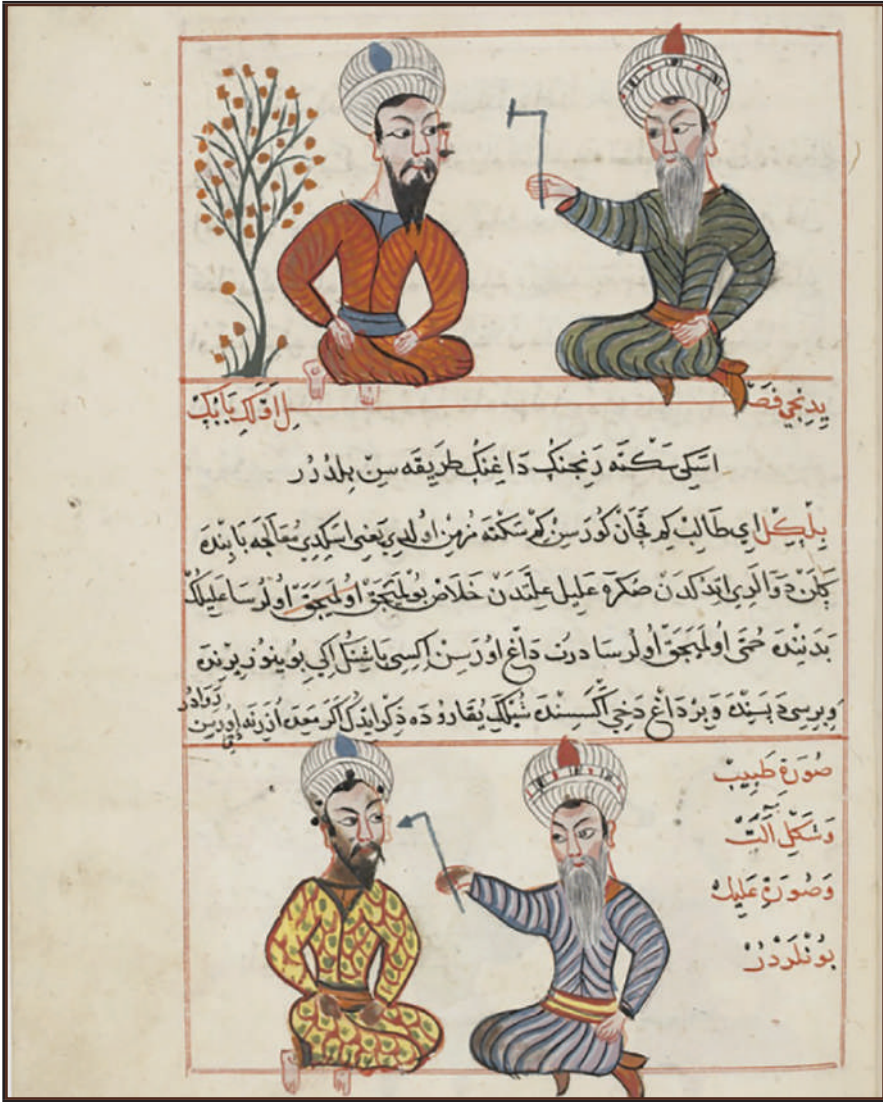 يدنجي فصل اوّلكي بابك
اسكي سكته رنجنك داغنك طريقه سن بلدرر
بلكل اي طالب كم قچان كورسن كم سكته مزمن اولدي يعني اسكدي معالجه بابنده
كلن دوالري ايدكدن صكره عليل علتدن خلاص بولميجق اولميجق اولورسا عليلك
بدننده حمّى اولميجق اولورسا درت داغ اورسن اكسي باشنك ايكي بوينوزيرنده
وبرسي دپسنده وبر داغ دخي اكسسنده شنك يقاروده ذكر ايدك اكر معده اوزرنه اورسن
روادر
صورة طبيب
وشكل آلت
وصورة عليل
بونلردر